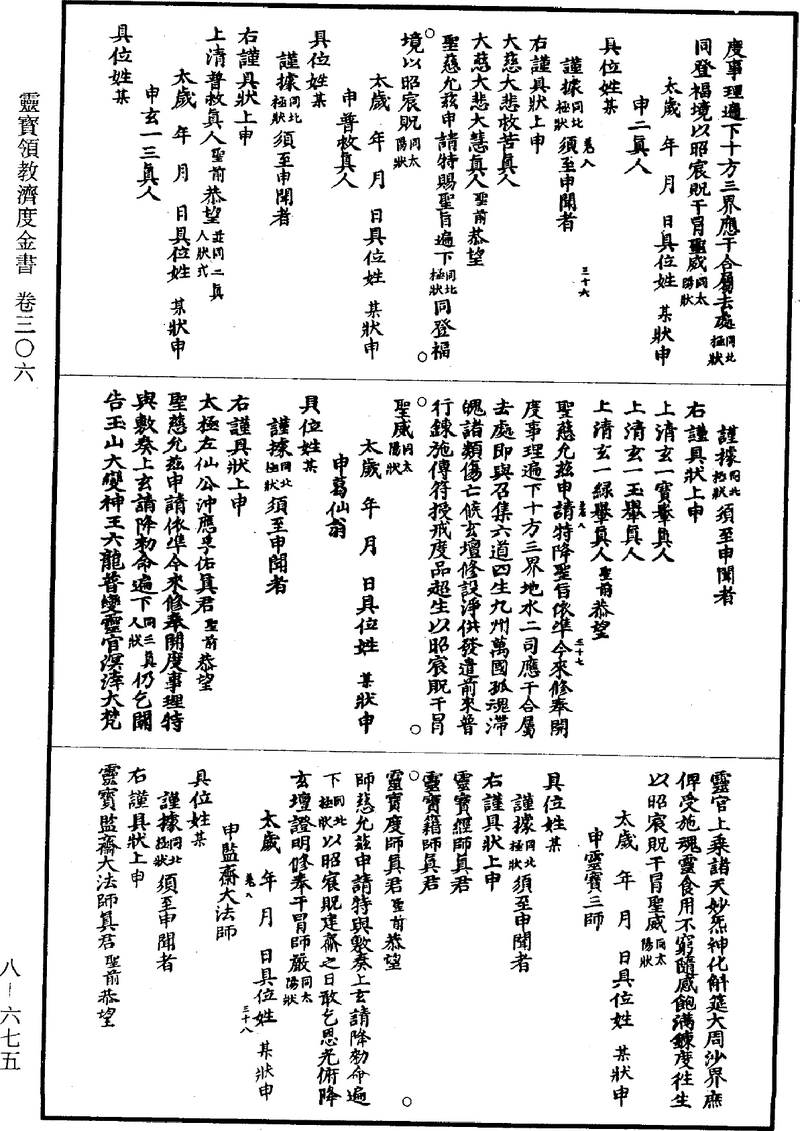 度事理遍下十方三界應干合屬去處同北極狀
同登福境以昭宸貺干冒聖威同太陽狀
太歲　年　月　日具位姓　某狀申
申二真人
具位姓某
謹據同北極狀須至申聞者
卷八　三十六
右謹具狀上申
大慈大悲救苦真人
大慈大悲大慧真人聖前恭望
聖慈允茲申請特賜聖旨遍下同北極狀同登福
境以昭宸貺同太陽狀
太歲　年　月　日具位姓　某狀申
申普救真人
具位姓某
謹據同北極狀須至申聞者
右謹具狀上申
上清普救真人聖前恭望並同二真人狀式
太歲　年　月　日具位姓　某狀申
申玄一三真人
具位姓某
謹據同北極狀須至申聞者
右謹具狀上申
上清玄一寶轝真人
上清玄一玉轝真人
上清玄一綠轝真人聖前恭望
卷八　三十七
聖慈允茲申請特降聖旨依準今來修奉開
度事理遍下十方三界地水二司應干合屬
去處即與召集六道四生九州萬國孤魂滯
魄諸類傷亡候玄壇修設淨供發遣前來普
行鍊施傳符授戒度品超生以昭宸貺干冒
聖威同太陽狀
太歲　年　月　日具位姓　某狀申
申葛仙翁
具位姓某
謹據同北極狀須至申聞者
右謹具狀上申
太極左仙公沖應孚佑真君聖前恭望
聖慈允茲申請依準今來修奉開度事理特
與敷奏上玄請降勅命遍下同三真人狀仍乞開
告玉山大變神王六龍普變靈官溟涬大梵
靈官上乘諸天妙炁神化斛筵大周沙界庶
俾受施魂靈食用不窮隨感飽滿鍊度往生
以昭宸貺干冒聖威同太陽狀
太歲　年　月　日具位姓　某狀申
申靈寶三師
具位姓某
謹據同北極狀須至申聞者
右謹具狀上申
靈寶經師真君
靈寶籍師真君
靈寶度師真君聖前恭望
師慈允茲申請特與敷奏上玄請降勅命遍
下同北極狀以昭宸貺建齋之日敢乞恩光俯降
玄壇證明修奉干冒師嚴同太陽狀
太歲　年　月　日具位姓　某狀申
卷八　三十八
申監齋大法師
具位姓某
謹據同北極狀須至申聞者
右謹具狀上申
靈寶監齋大法師真君聖前恭望
靈寶領教濟度金書　卷三〇六
八－六七五